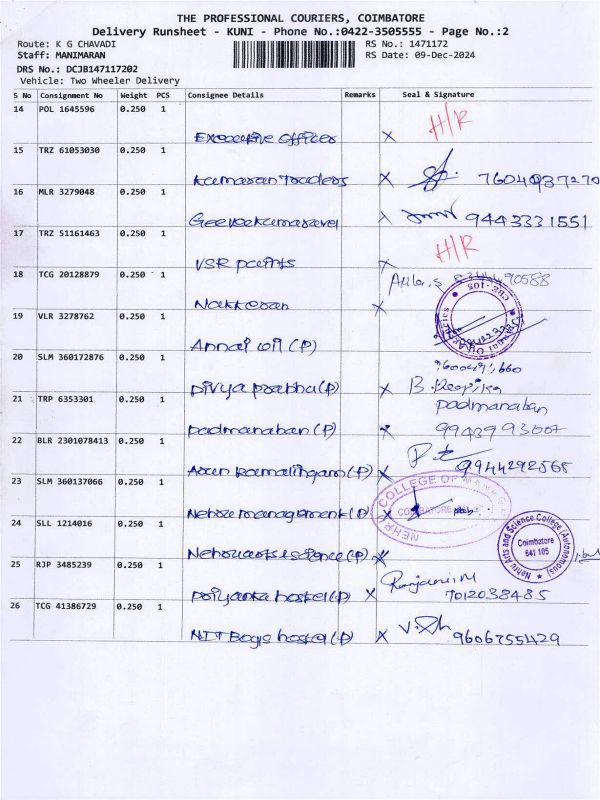 THE PROFESSIONAL COURIERS, COIMBATORE
Delivery Runsheet - KUNI - Phone No.:0422-3505555 - Page No.:2
Route: K G CHAVADI RS No.: 1471172
Staff: MANIMARAN RS Date: 09-Dec-2024
DRS No.: DCJB147117202
Vehicle: Two Wheeler Delivery
S No Consignment No Weight PCS Consignee Details Remarks Seal & Signature
14 POL 1645596 0.250 1 H/R
Executive officer x
15 TRZ 61053030 0.250 1
Kumaran Traders x 7604037270
16 MLR 3279048 0.250 1
Geeveekumaravel x 9443331551
17 TRZ 51161463 0.250 1 H/R
VSR paints x
18 TCG 20128879 0.250 1
Nakkeran x
19 VLR 3278762 0.250 1
Annai oil (P)
20 SLM 360172876 0.250 1
Divya prabha (P) x B. Deepika
21 TRP 6353301 0.250 1 padmanaban
padmanaban (P) x
22 BLR 2301078413 0.250 1
(P) x 9944292568
23 SLM 360137066 0.250 1 COLLEGE OF
Nehru management (P) x COIMBATORE
NEHRU
24 SLL 1214016 0.250 1 Nehru Arts and Science College (Autonomous)
Coimbatore
641 105
Nehru arts science (P) x
25 RJP 3485239 0.250 1 Ranjani M
priyanka hostel (P) x 7012038485
26 TCG 41386729 0.250 1
NIT Boys hostel (P) x 9606755429